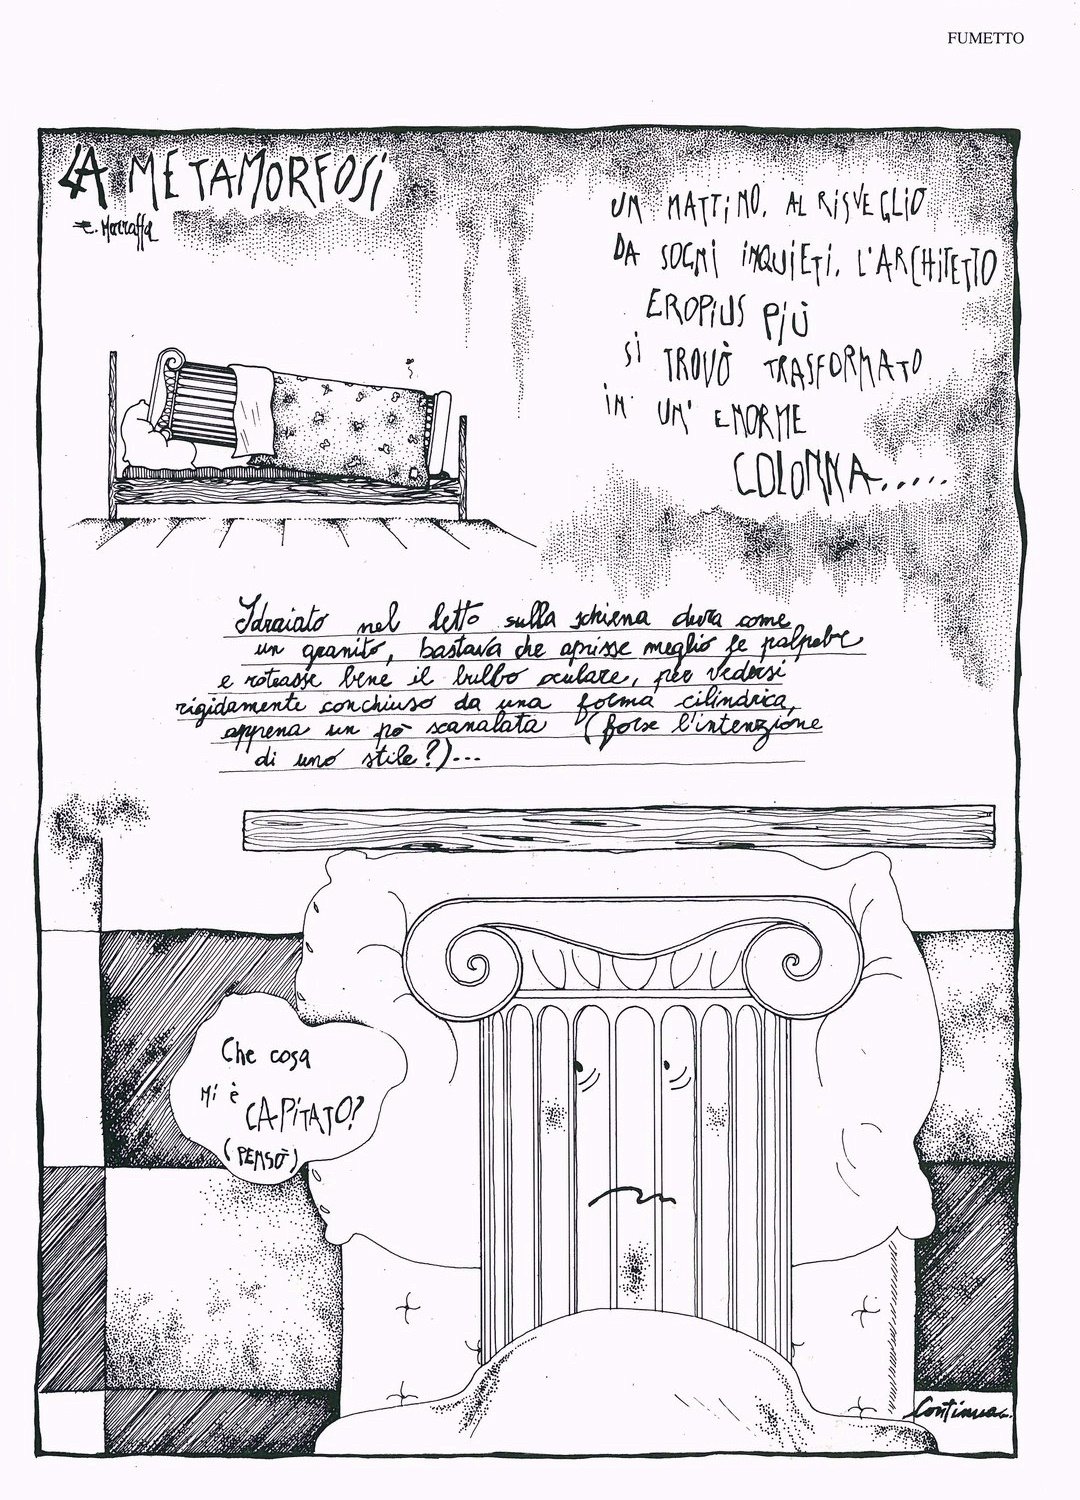 FUMETTO
LA METAMORFOSI
E. Marraffa
UN MATTINO, AL RISVEGLIO
DA SOGNI INQUIETI, L'ARCHITETTO
EROPIUS PIÙ
SI TROVÒ TRASFORMATO
IN UN' ENORME
COLONNA.....
Sdraiato nel letto sulla schiena dura come
un granito, bastava che aprisse meglio le palpebre
e roteasse bene il bulbo oculare, per vedersi
rigidamente conchiuso da una forma cilindrica,
appena un pò scanalata (forse l'intenzione
di uno stile?)...
Che cosa
Mi è
CAPITATO?
(PENSÒ)
Continua..